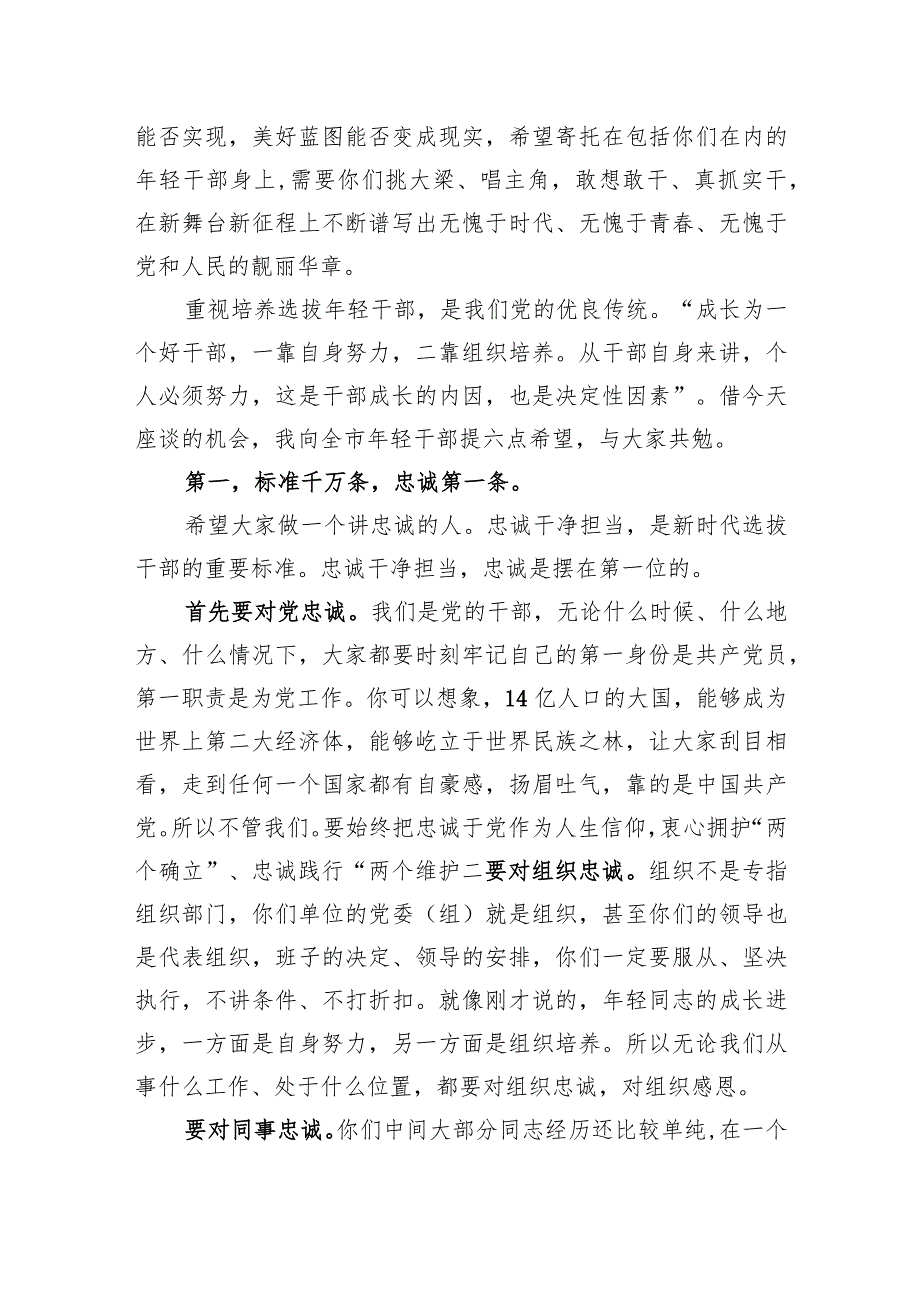 能否实现，美好蓝图能否变成现实，希望寄托在包括你们在内的
年轻干部身上,需要你们挑大梁、唱主角，敢想敢干、真抓实干，
在新舞台新征程上不断谱写出无愧于时代、无愧于青春、无愧于
党和人民的靓丽华章。
重视培养选拔年轻干部，是我们党的优良传统。“成长为一
个好干部，一靠自身努力，二靠组织培养。从干部自身来讲，个
人必须努力，这是干部成长的内因，也是决定性因素”。借今天
座谈的机会，我向全市年轻干部提六点希望，与大家共勉。
第一，标准千万条，忠诚第一条。
希望大家做一个讲忠诚的人。忠诚干净担当，是新时代选拔
干部的重要标准。忠诚干净担当，忠诚是摆在第一位的。
首先要对党忠诚。我们是党的干部，无论什么时候、什么地
方、什么情况下，大家都要时刻牢记自己的第一身份是共产党员，
第一职责是为党工作。你可以想象，14亿人口的大国，能够成为
世界上第二大经济体，能够屹立于世界民族之林，让大家刮目相
看，走到任何一个国家都有自豪感，扬眉吐气，靠的是中国共产
党。所以不管我们。要始终把忠诚于党作为人生信仰，衷心拥护“两
个确立”、忠诚践行“两个维护二要对组织忠诚。组织不是专指
组织部门，你们单位的党委（组）就是组织，甚至你们的领导也
是代表组织，班子的决定、领导的安排，你们一定要服从、坚决
执行，不讲条件、不打折扣。就像刚才说的，年轻同志的成长进
步，一方面是自身努力，另一方面是组织培养。所以无论我们从
事什么工作、处于什么位置，都要对组织忠诚，对组织感恩。
要对同事忠诚。你们中间大部分同志经历还比较单纯,在一个